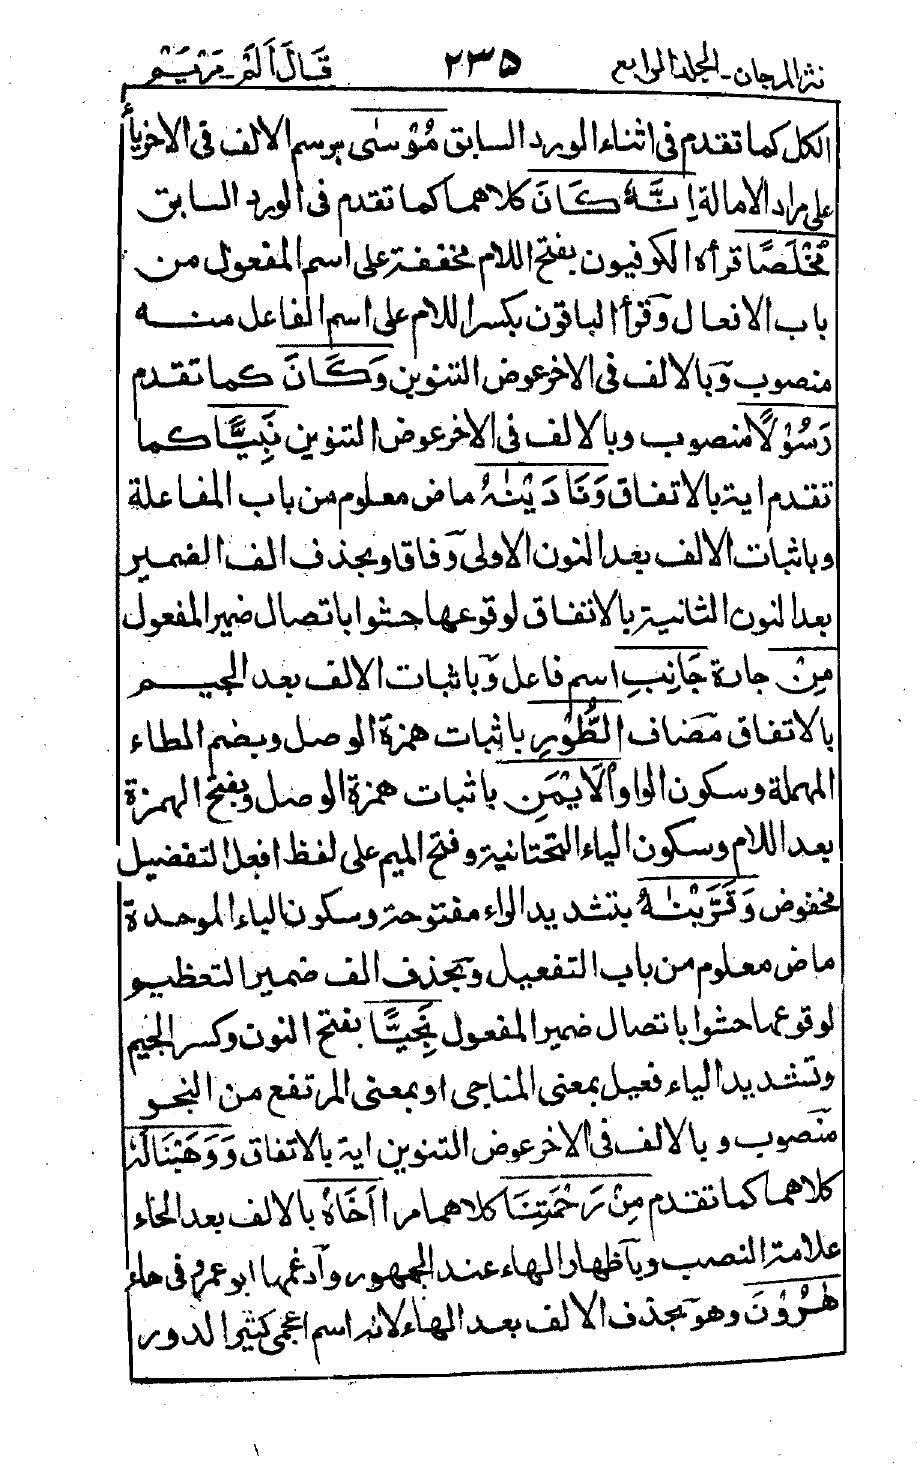 نثر المرجان - المجلد الرابع ٢٣٥ قَالَ أَلَمْ - مَرْيَمْ
الكل كما تقدم فى اثناء الورد السابق مُوْسٰى برسم الالف فى الاخرياً
على مراد الامالة اِنَّهٗ كَانَ كلاهما كما تقدم فى الورد السابق
مُخْلَصًا قرأه الكوفيون بفتح اللام مخففة على اسم المفعول من
باب الافعال وقرأ الباقون بكسر اللام على اسم الفاعل منه
منصوب وبالالف فى الاخر عوض التنوين وَكَانَ كما تقدم
رَسُوْلًا منصوب وبالالف فى الاخر عوض التنوين نَبِيًّا كما
تقدم اية بالاتفاق وَنَادَيْنٰهُ ماض معلوم من باب المفاعلة
وباثبات الالف بعد النون الاولى وفاقا وبحذف الف الضمير
بعد النون الثانية بالاتفاق لوقوعها حشوا باتصال ضمير المفعول
مِنْ جارة جَانِبِ اسم فاعل وباثبات الالف بعد الجيم
بالاتفاق مضاف الطُّوْرِ باثبات همزة الوصل وبضم الطاء
المهملة وسكون الواو الْاَيْمَنِ باثبات همزة الوصل وبفتح الهمزة
بعد اللام وسكون الياء التحتانية وفتح الميم على لفظ افعل التفضيل
مخفوض وَقَرَّبْنٰهُ بتشديد الراء مفتوحة وسكون الباء الموحدة
ماض معلوم من باب التفعيل وبحذف الف ضمير التعظيم
لوقوعها حشوا باتصال ضمير المفعول نَجِيًّا بفتح النون وكسر الجيم
وتشديد الياء فعيل بمعنى المناجى او بمعنى المرتفع من النجو
منصوب وبالالف فى الاخر عوض التنوين اية بالاتفاق وَوَهَبْنَا لَهٗ
كلاهما كما تقدم مِنْ رَحْمَتِنَا كلاهما مرا اَخَاهُ بالالف بعد الخاء
علامة النصب وباظهار الهاء عند الجمهور وادغمها ابو عمرو فى هاء
هٰرُوْنَ وهو بحذف الالف بعد الهاء لانه اسم اعجمى كثير الدور